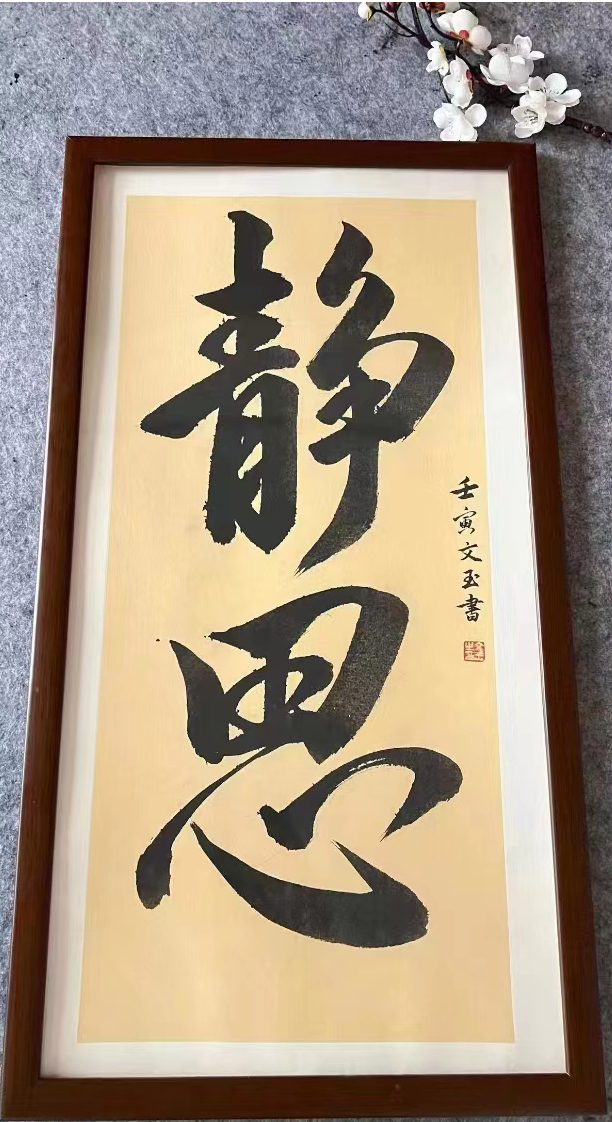 静思
壬寅文玉書